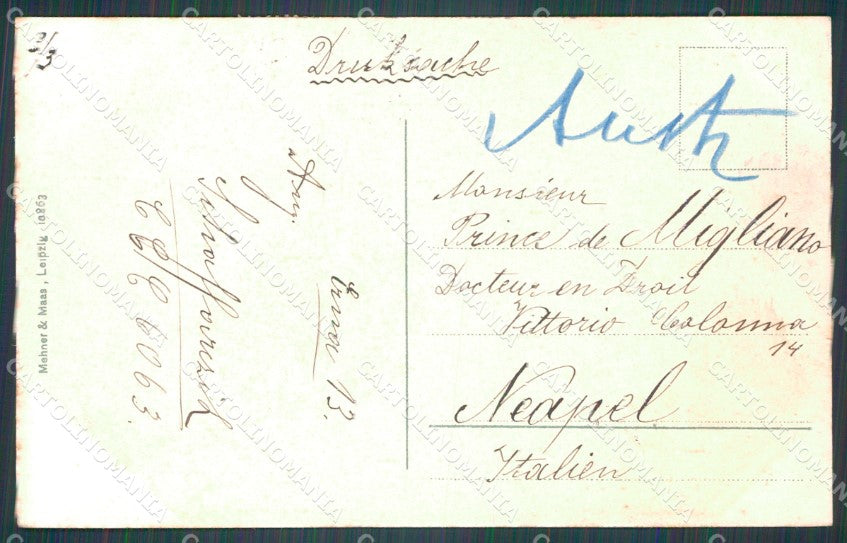 Drucksache
Austr
Monsieur
Prince de Migliano
Docteur en Droit
Vittorio Colonna
14
Neapel
Italien
Erna 13.
6063.
Mehner & Maas, Leipzig, 10863
CARTOLINOMANIA